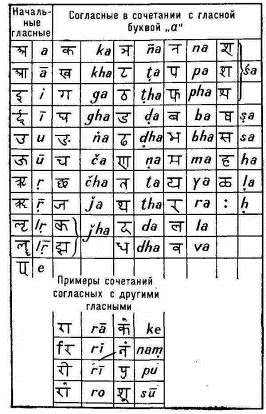 Началь-
ные
гласные
Согласные в сочетании с гласной
буквой „а“
अ a क ka ञ ña न na श
आ ā ख kha ट ṭa प pa श śa
इ i ग ga ठ ṭha फ pha
ई ī घ gha ड ḍa ब ba ष ṣa
उ u ङ ṅa ढ ḍha भ bha स sa
ऊ ū च ča ण ṇa म ma ह ha
ऋ ṛ छ čha त ta य ya ळ ḷa
ॠ ṝ ज ja थ tha र ra : ḥ
ऌ lṛ द da ल la
ॡ lṝ झ ǰha ध dha व va
ए e
Примеры сочетаний
согласных с другими
гласными
रा rā के ke
रि rī तं naṃ
री rī पु pu
रो ro शू sū